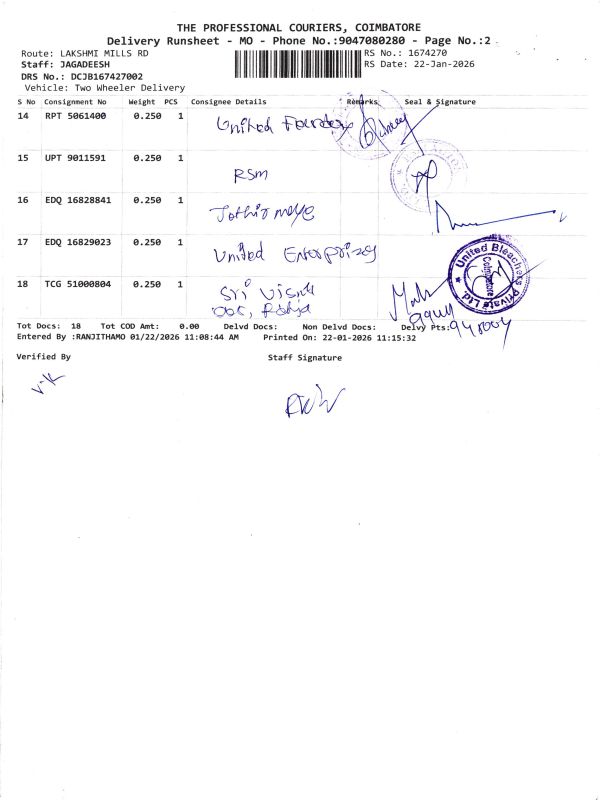 THE PROFESSIONAL COURIERS, COIMBATORE
Delivery Runsheet - MO - Phone No.:9047080280 - Page No.:2
Route: LAKSHMI MILLS RD RS No.: 1674270
Staff: JAGADEESH RS Date: 22-Jan-2026
DRS No.: DCJB167427002
Vehicle: Two Wheeler Delivery
S No Consignment No Weight PCS Consignee Details Remarks Seal & Signature
14 RPT 5061400 0.250 1 United
15 UPT 9011591 0.250 1 RSM
16 EDQ 16828841 0.250 1
17 EDQ 16829023 0.250 1 United Enterprizes
United Bleachers Private Ltd.
Coimbatore
18 TCG 51000804 0.250 1 Sri
Tot Docs: 18 Tot COD Amt: 0.00 Delvd Docs: Non Delvd Docs: Delvy Pts:
Entered By :RANJITHAMO 01/22/2026 11:08:44 AM Printed On: 22-01-2026 11:15:32
Verified By Staff Signature